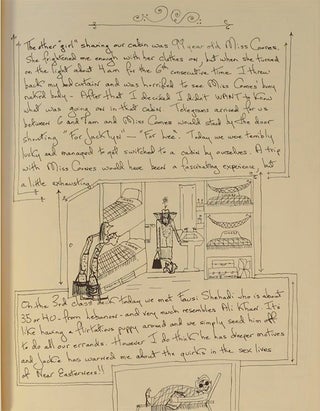 The other "girl" sharing our cabin was 99 year old Miss Coones.
She frightened me enough with her clothes on, but when she turned
on the light about 4am for the 6th consecutive time I threw
back my bed curtain and was horrified to see Miss Coones bony
naked body - After that I decided I didn't WANT to know
what was going on in that cabin. Telegrams arrived for us
between 6 and 7am and Miss Coones would stand by the door
shouting "For Jacklyn" - "For Lee". Today we were terribly
lucky and managed to get switched to a cabin by ourselves. A trip
with Miss Coones would have been a fascinating experience but
a little exhausting.
On the 3rd class deck today we met Fausi Shehadi who is about
35 or 40 - from Lebanon - and very much resembles Ali Khan. It's
like having a flirtatious puppy around and we simply send him off
to do all our errands. However I do think he has deeper motives
and Jackie has warned me about the quirks in the sex lives
of Near Easterners!!